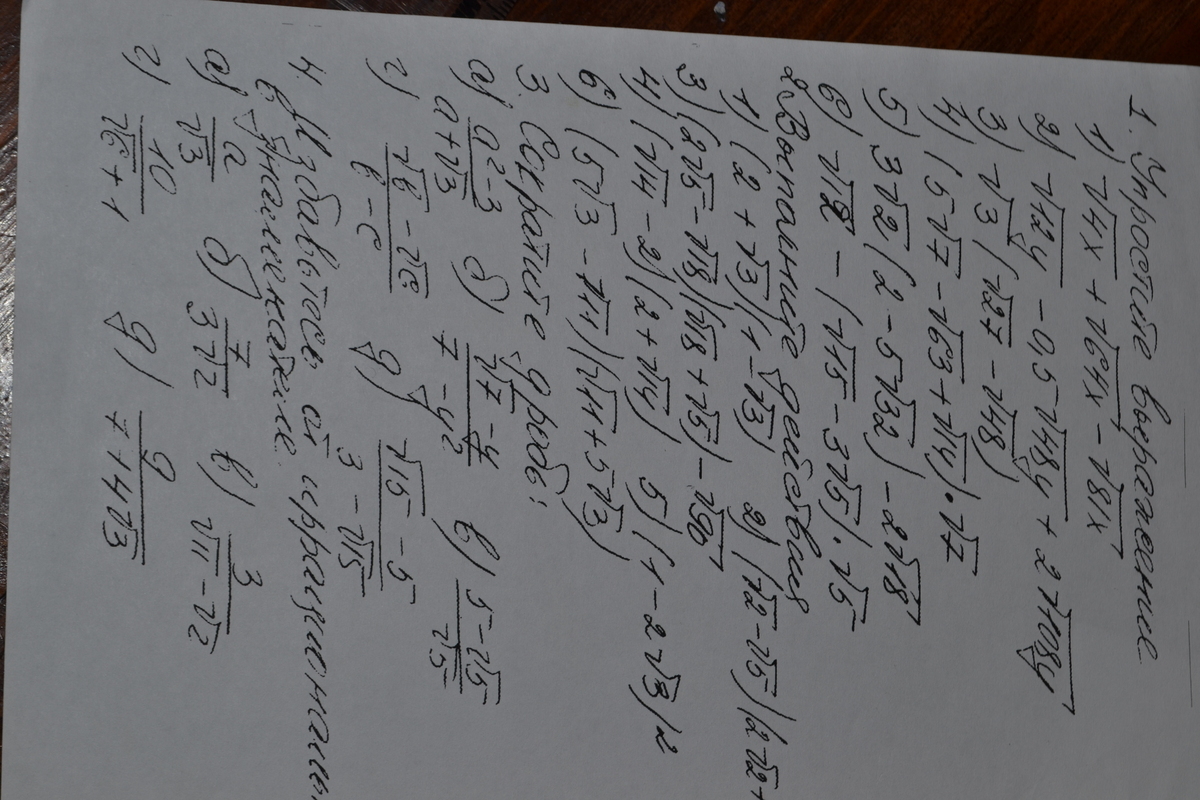 1. Упростите выражение
1) √4x + √64x - √81x
2) √12y - 0,5√48y + 2√108y
3) √3(√27 - √48)
4) (5√7 - √63 + √14)·√7
5) 3√2(2 - 5√32) - 2√18
6) √12 - (√15 - 3√5)·√5
2. Выполните действия
1) (2 + √3)(1 - √3) 2) (√2 - √5)(2√2 +
3) (2√5 - √18)(√18 + √5) - √90
4) (√14 - 2)(2 + √14) 5) (1 - 2√3)²
6) (5√3 - √11)(√11 + 5√3)
3. Сократите дробь:
а) a² - 3 / a + √3 б) √7 - y / 7 - y² в) 5 - √5 / √5
г) √b - √c / b - c д) √15 - 5 / 3 - √15
4. Избавьтесь от иррациональн
в знаменателе.
а) a / √3 б) 7 / 3√2 в) 3 / √11 - √2
г) 10 / √6 + 1 д) 9 / 7 + 4√3